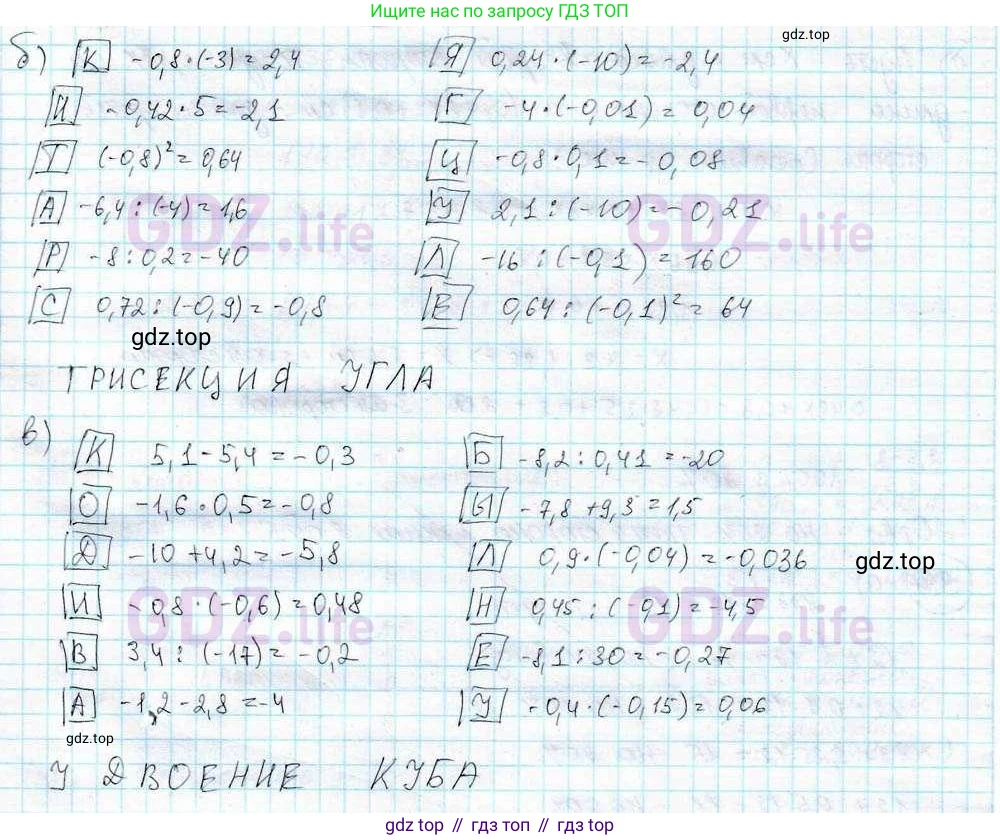 Ищите ответ по запросу ГДЗ ТОП
gdz.top
б) К -0,8·(-3)=2,4 Я 0,24·(-10)=-2,4
И -0,42·5=-2,1 Г -4·(-0,01)=0,04
Т (-0,8)²=0,64 Ц -0,8·0,1=-0,08
А -6,4:(-4)=1,6 У 2,1:(-10)=-0,21
GDZ.life GDZ.life
Р -8:0,2=-40 Л -16:(-0,1)=160
С 0,72:(-0,9)=-0,8 Е 0,64:(-0,1)²=64
gdz.top
ТРИСЕКЦИЯ УГЛА
в) К 5,1-5,4=-0,3 Б -8,2:0,41=-20
О -1,6·0,5=-0,8 Ы -7,8+9,3=1,5
Д -10+4,2=-5,8 Л 0,9·(-0,04)=-0,036 gdz.top
И -0,8·(-0,6)=0,48 Н 0,45:(-0,1)=-4,5
GDZ.life GDZ.life
В 3,4:(-17)=-0,2 Е -8,1:30=-0,27
А -1,2-2,8=-4 У -0,4·(-0,15)=0,06
gdz.top
УДВОЕНИЕ КУБА
gdz.top // гдз топ // гдз.топ